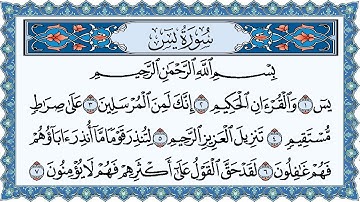 سُورَةُ يسٓ
بِسْمِ ٱللَّهِ ٱلرَّحْمَٰنِ ٱلرَّحِيمِ
يسٓ ١ وَٱلْقُرْءَانِ ٱلْحَكِيمِ ٢ إِنَّكَ لَمِنَ ٱلْمُرْسَلِينَ ٣ عَلَىٰ صِرَٰطٍ
مُّسْتَقِيمٍ ٤ تَنزِيلَ ٱلْعَزِيزِ ٱلرَّحِيمِ ٥ لِتُنذِرَ قَوْمًا مَّآ أُنذِرَ ءَابَآؤُهُمْ
فَهُمْ غَٰفِلُونَ ٦ لَقَدْ حَقَّ ٱلْقَوْلُ عَلَىٰٓ أَكْثَرِهِمْ فَهُمْ لَا يُؤْمِنُونَ ٧